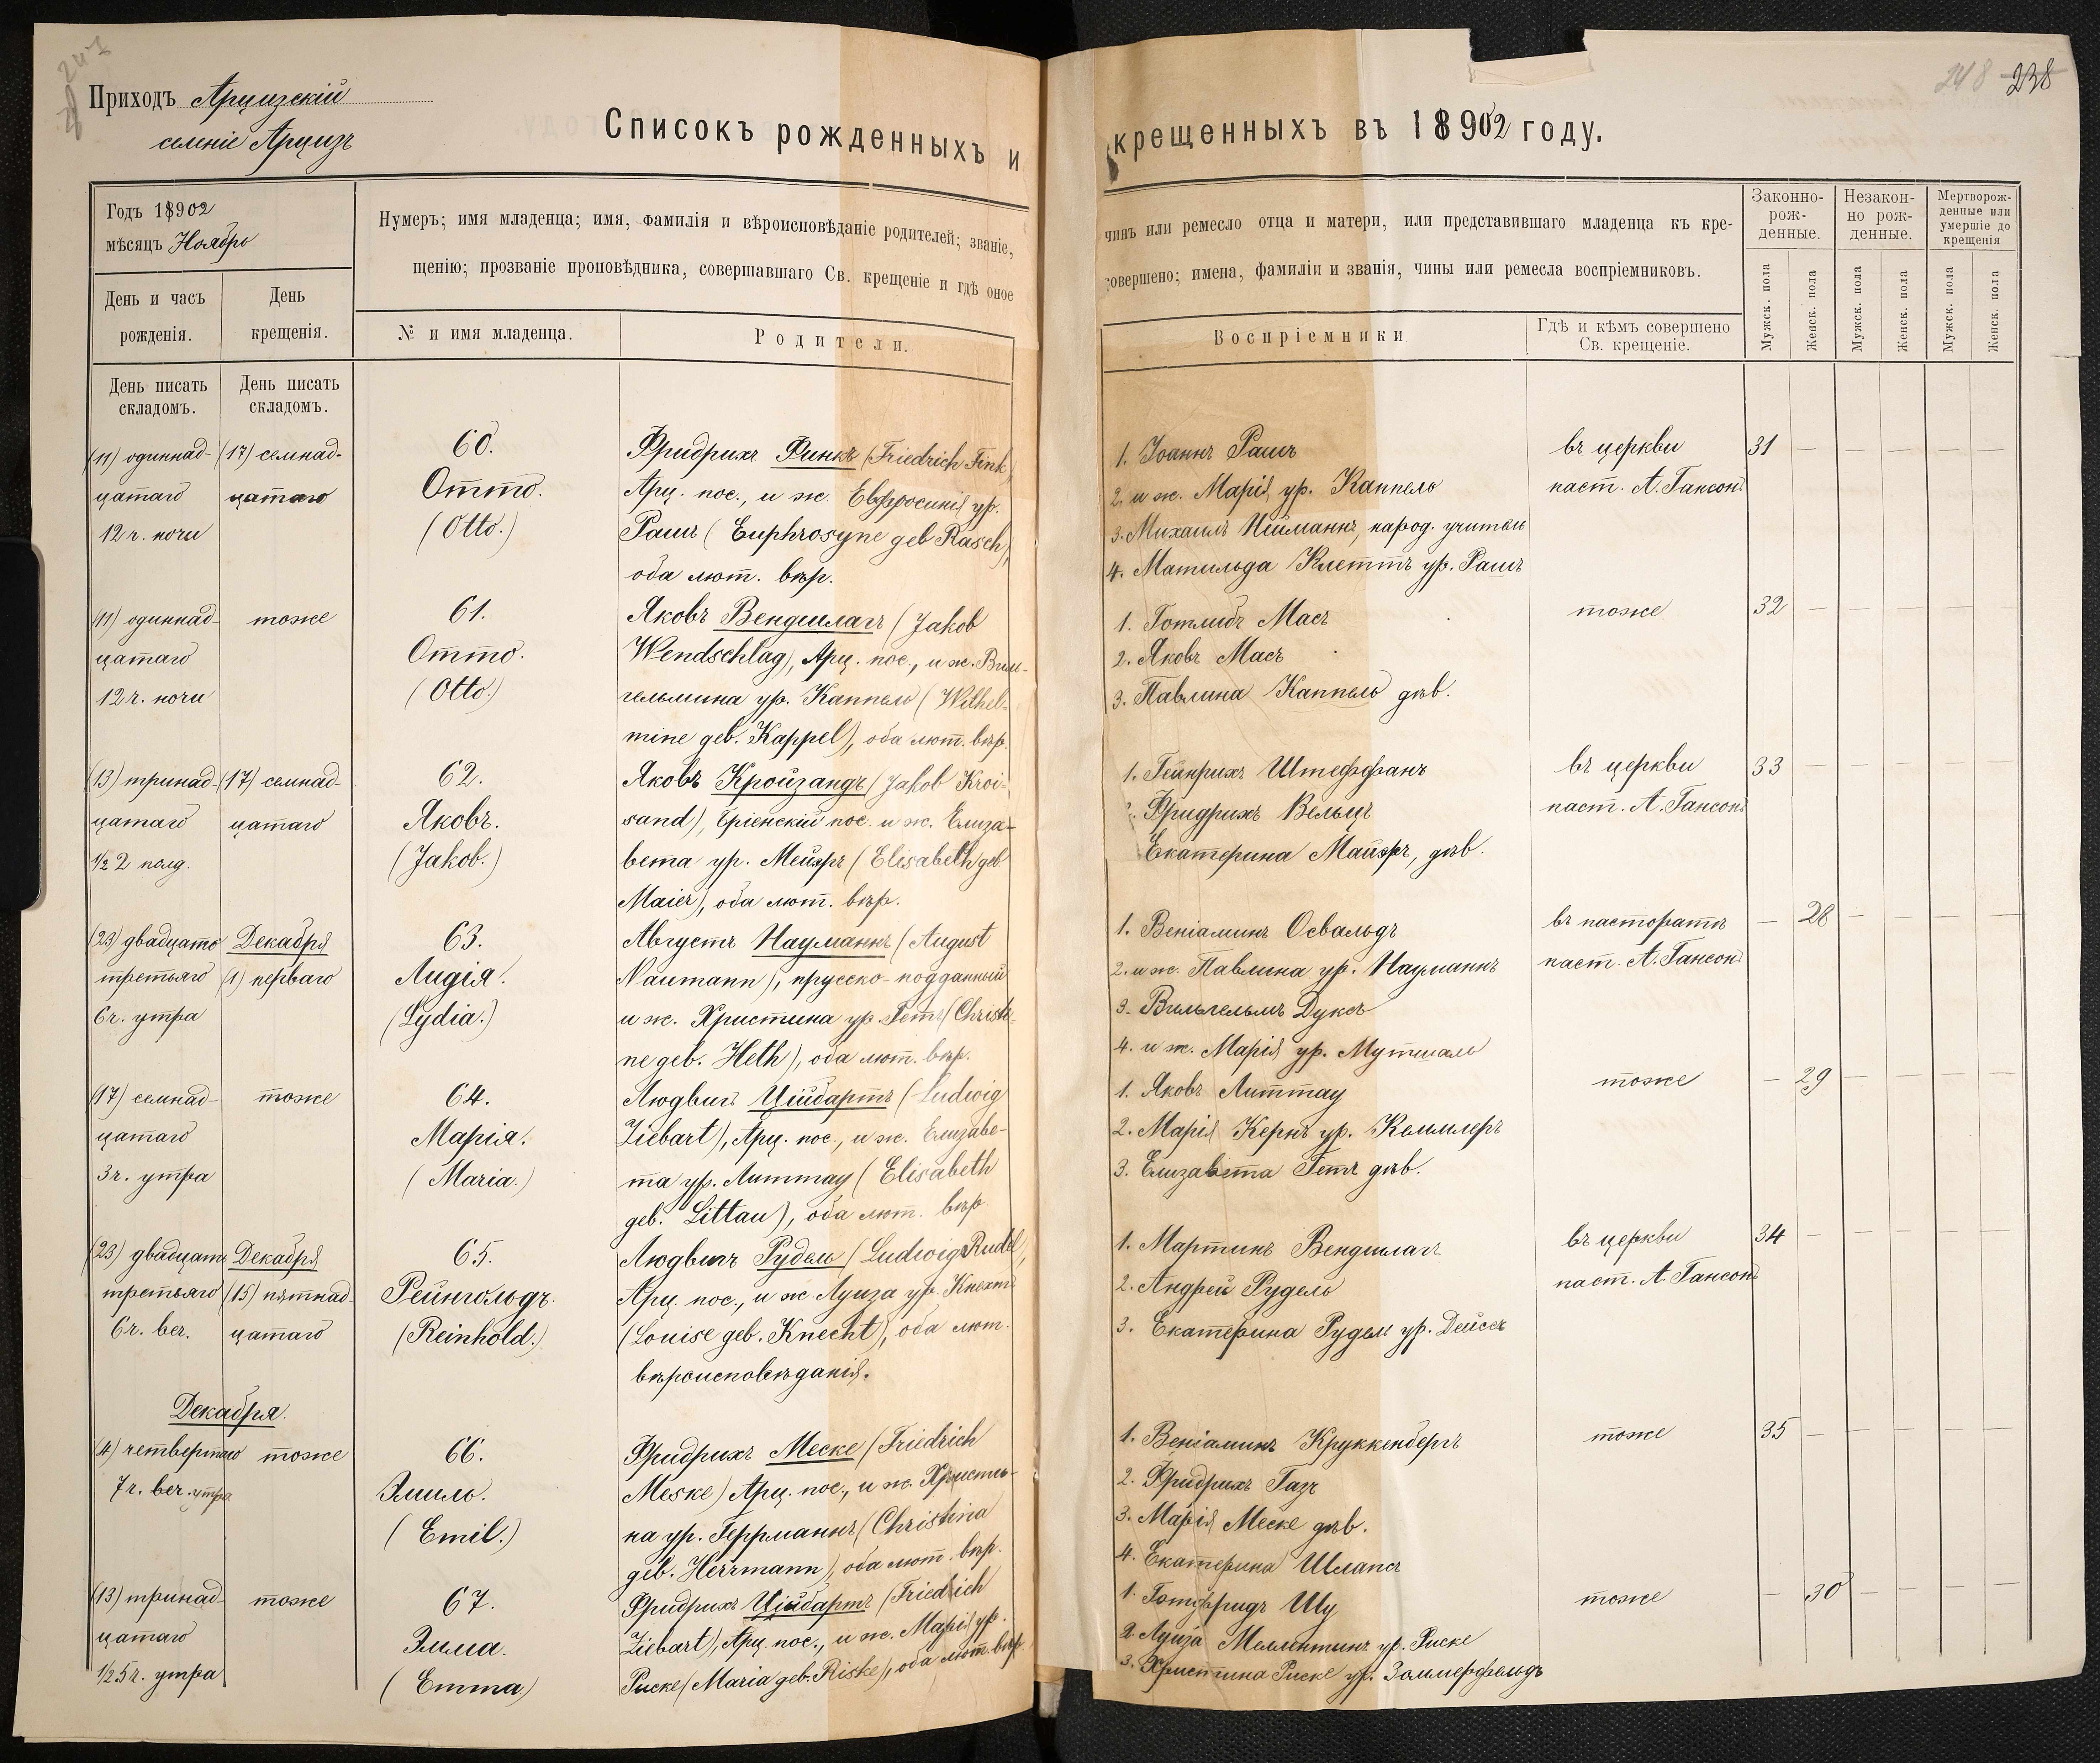 247
248 238
Приходъ Арцизскій
селеніе Арцизъ
Списокъ рожденныхъ и крещенныхъ въ 18902 году.
Годъ 18902
мѣсяцъ Ноябрь
Нумеръ; имя младенца; имя, фамилія и вѣроисповѣданіе родителей; званіе, чинъ или ремесло отца и матери, или представившаго младенца къ кре-
щенію; прозваніе проповѣдника, совершавшаго Св. крещеніе и гдѣ оное совершено; имена, фамиліи и званія, чины или ремесла воспріемниковъ.
День и часъ рожденія.
День крещенія.
№ и имя младенца.
Родители.
Воспріемники
Гдѣ и кѣмъ совершено Св. крещеніе.
Законно-рож-денные.
Незакон-но рож-денные.
Мертворож-денные или умершіе до крещенія
Мужск. пола
Женск. пола
Мужск. пола
Женск. пола
Мужск. пола
Женск. пола
День писать складомъ.
День писать складомъ.
(11) одиннад-
цатаго
12 ч. ночи
(17) семнад-
цатаго
60.
Отто.
(Otto.)
Фридрихъ Финкъ (Friedrich Fink),
Арц. пос., и ж. Евфросинія ур.
Рашъ (Euphrosyne geb Rasch),
оба лют. вѣр.
1. Іоаннъ Рашъ
2. и ж. Марія ур. Каппель
3. Михаилъ Нейманнъ, народ. учитель
4. Матильда Клеттъ ур. Рашъ
въ церкви
паст. А. Гансонъ
31 — — — — —
(11) одиннад-
цатаго
12 ч. ночи
тоже
61.
Отто.
(Otto.)
Яковъ Вендшлагъ (Jakob
Wendschlag), Арц. пос., и ж. Виль-
гельмина ур. Каппель (Wilhel-
mine geb. Kappel), оба лют. вѣр.
1. Готлибъ Масъ
2. Яковъ Масъ
3. Павлина Каппель дѣв.
тоже
32 — — — — —
(13) тринад-
цатаго
1/2 2 полд.
(17) семнад-
цатаго
62.
Яковъ.
(Jakob.)
Яковъ Кройзандъ (Jakob Kroi-
sand), Бріенскій пос. и ж. Елиза-
вета ур. Мейеръ (Elisabeth geb
Maier), оба лют. вѣр.
1. Гейнрихъ Штеффанъ
Фридрихъ Вельцъ
Екатерина Майеръ, дѣв.
въ церкви
паст. А. Гансонъ
33 — — — — —
(23) двадцать
третьяго
6 ч. утра
Декабря
(1) перваго
63.
Лидія.
(Lydia.)
Августъ Науманнъ (August
Naumann), прусско-подданный
и ж. Христина ур. Гетъ (Christi-
ne geb. Heth), оба лют. вѣр.
1. Веніаминъ Освальдъ
2. и ж. Павлина ур. Науманнъ
3. Вильгельмъ Дуксъ
4. и ж. Марія ур. Мутшаль
въ пасторатѣ
паст. А. Гансонъ
— 28 — — — —
(17) семнад-
цатаго
3 ч. утра
тоже
64.
Марія.
(Maria.)
Людвигъ Цийбартъ (Ludwig
Ziebart), Арц. пос., и ж. Елизаве-
та ур. Литтау (Elisabeth
geb. Littau), оба лют. вѣр.
1. Яковъ Литтау
2. Марія Кернъ ур. Кеммлеръ
3. Елизавета Гетъ дѣв.
тоже
— 29 — — — —
(23) двадцать
третьяго
6 ч. веч.
Декабря
(15) пятнад-
цатаго
65.
Рейнгольдъ.
(Reinhold.)
Людвигъ Рудель (Ludwig Rudel),
Арц. пос., и ж. Луиза ур. Кнехтъ
(Louise geb. Knecht), оба лют.
вѣроисповѣданія.
1. Мартинъ Вендшлагъ
2. Андрей Рудель
3. Екатерина Рудель ур. Дейсъ
въ церкви
паст. А. Гансонъ
34 — — — — —
Декабря.
(4) четвертаго
7 ч. веч. утра
тоже
66.
Эмиль.
(Emil.)
Фридрихъ Меске (Friedrich
Meske) Арц. пос., и ж. Христи-
на ур. Геррманнъ (Christina
geb. Herrmann), оба лют. вѣр.
1. Веніаминъ Круккенбергъ
2. Фридрихъ Газъ
3. Марія Меске дѣв.
4. Екатерина Шлапсъ
тоже
35 — — — — —
(13) тринад-
цатаго
1/2 5 ч. утра
тоже
67.
Эмма.
(Emma)
Фридрихъ Цийбартъ (Friedrich
Ziebart), Арц. пос., и ж. Марія ур.
Риске (Maria geb. Riske), оба лют. вѣр.
1. Готфридъ Шу
2. Луиза Меллентинъ ур. Риске
3. Христина Риске ур. Зоммерфельдъ
тоже
— 30 — — — —